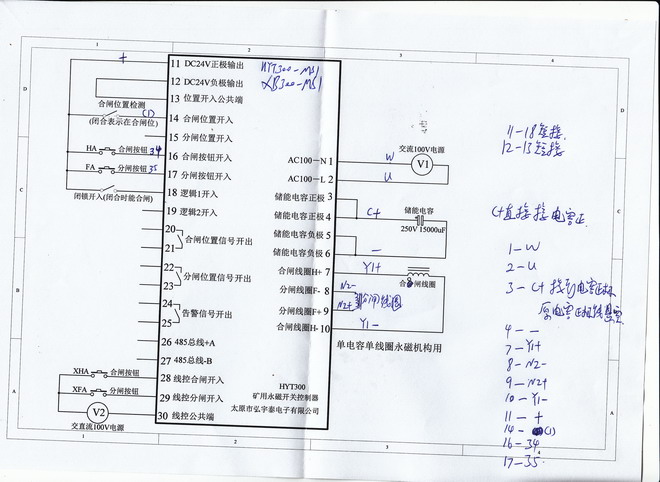 11 DC24V正极输出
12 DC24V负极输出
13 位置开入公共端
14 合闸位置开入
15 分闸位置开入
16 合闸按钮开入
17 分闸按钮开入
18 逻辑1开入
19 逻辑2开入
20
21
合闸位置信号开出
22
23
分闸位置信号开出
24
25
告警信号开出
26 485总线+A
27 485总线-B
28 线控合闸开入
29 线控分闸开入
30 线控公共端
+
合闸位置检测
(1)
(闭合表示在合闸位)
HA 合闸按钮 34
FA 分闸按钮 35
闭锁开入(闭合时能合闸)
XHA 合闸按钮
XFA 分闸按钮
V2
交直流100V电源
HYT300-MS1
XB300-MS1
AC100-N 1
AC100-L 2
储能电容正极 3
储能电容正极 4
储能电容负极 5
储能电容负极 6
合闸线圈H+ 7
分闸线圈F- 8
分闸线圈F+ 9
合闸线圈H- 10
HYT300
矿用永磁开关控制器
太原市弘宇泰电子有限公司
W
U
交流100V电源
V1
C+
储能电容
250V 15000uF
-
Y1+
N2-
N2+
Y1-
合闸线圈
单电容单线圈永磁机构用
11-18短接
12-13短接
C+直接接电容正
1-W
2-U
3-C+接到电容正极
4--
7-Y1+
8-N2-
9-N2+
10-Y1-
11-+
14-(1)
16-34
17-35